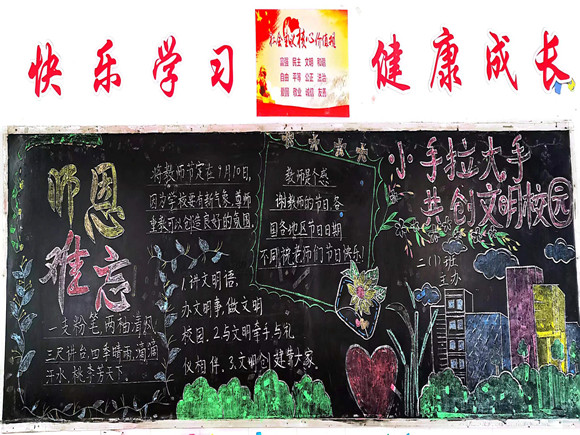 快乐学习
社会主义核心价值观
富强 民主 文明 和谐
自由 平等 公正 法治
爱国 敬业 诚信 友善
健康成长
师恩
难忘
一支粉笔,两袖清风,
三尺讲台,四季晴雨,滴滴
汗水,桃李芳天下。
将教师节定在9月10日,
因为学校要有新气象,尊师
重教可以创造良好的氛围。
1.讲文明语,
办文明事,做文明
校园。2.与文明牵手,与礼
仪相伴。3.文明创建靠大家。
教师是个感
谢教师的节日,各
国各地区节日日期
不同,祝老师们节日快乐!
小手拉大手
共创文明校园
二(1)班
主办